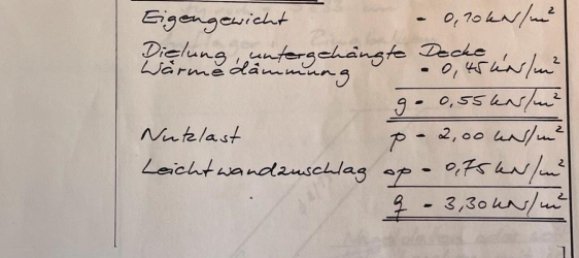 Eigengewicht = 0,10 kN/m²
Dielung, untergehängte Decke,
Wärmedämmung = 0,45 kN/m²
g = 0,55 kN/m²
Nutzlast p = 2,00 kN/m²
Leichtwandzuschlag Δp = 0,75 kN/m²
q = 3,30 kN/m²